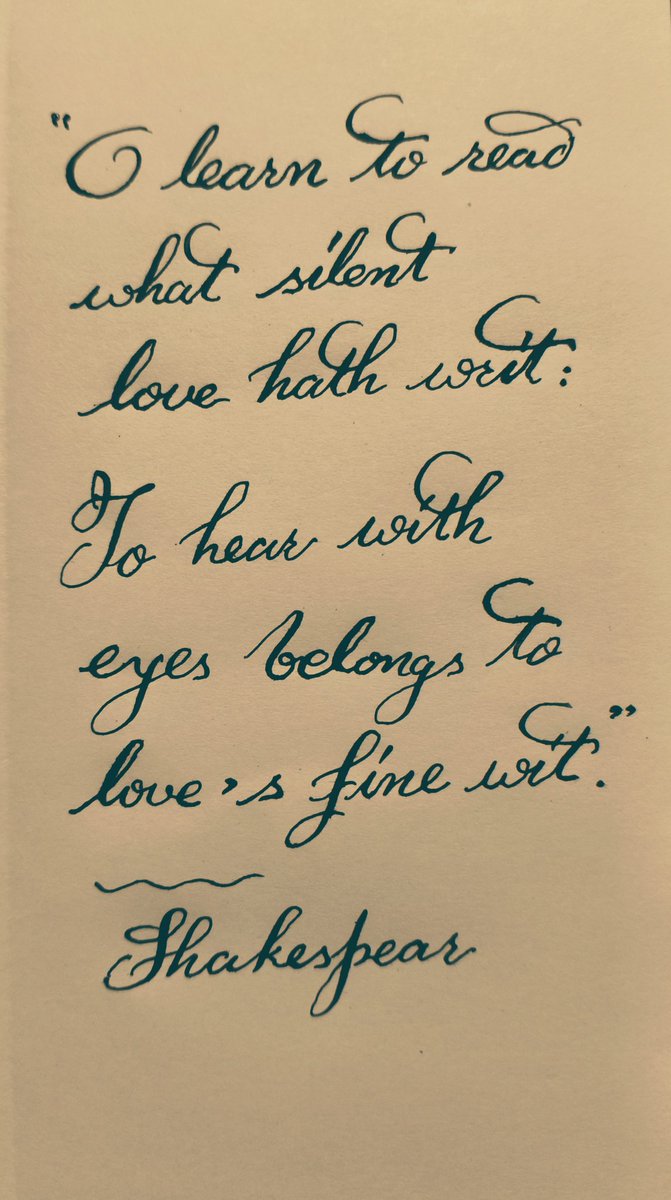 "O learn to read
what silent
love hath writ:
To hear with
eyes belongs to
love's fine wit."
Shakespear